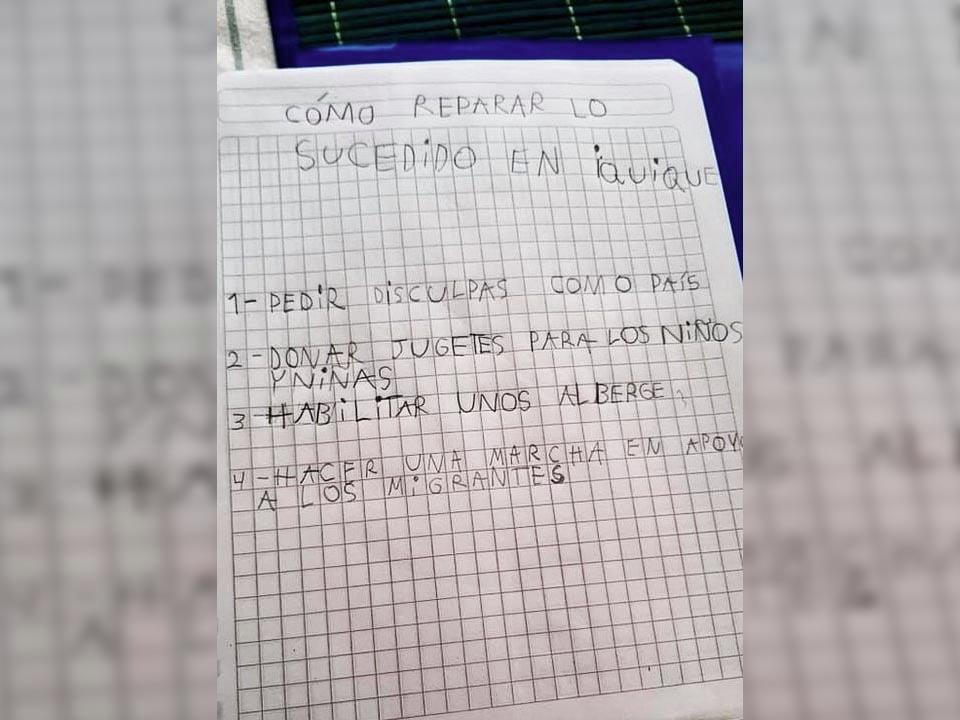 CÓMO REPARAR LO
SUCEDiDO EN iquique
1- PEDiR DiSCULPAS COMO PAÍS
2- DONAR JUGETES PARA LOS NiÑOS
Y NiÑAS
3- HABiLiTAR UNOS ALBERGE
4- HACER UNA MARCHA EN APOYO
A LOS MiGRANTES